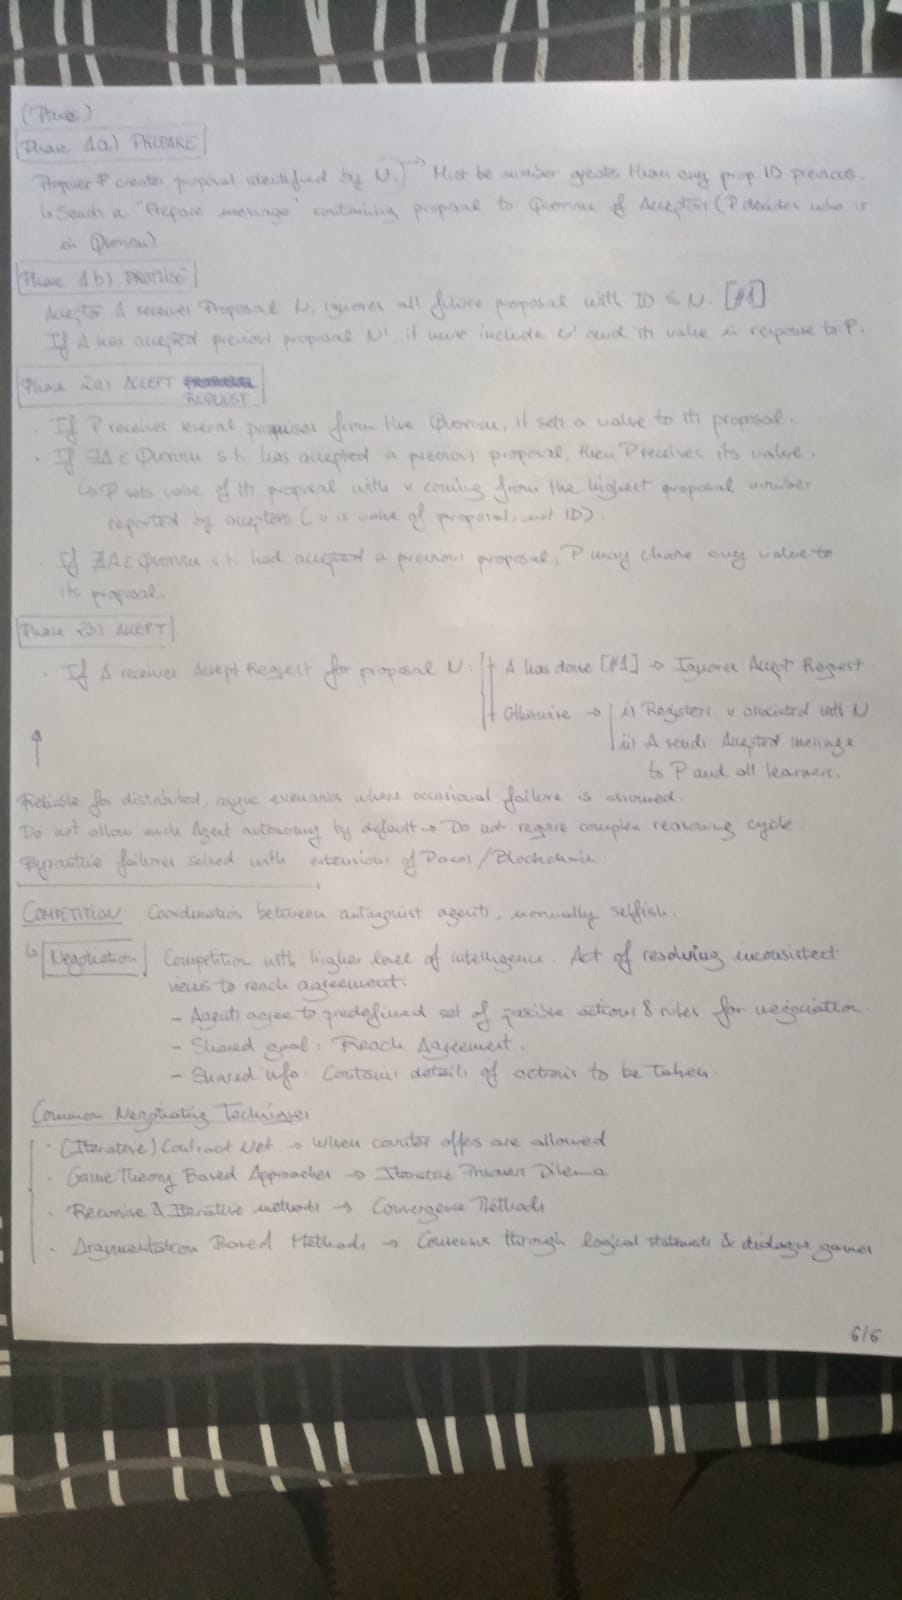 (Paxos)
Phase 1a) PREPARE
Proposer P creates proposal identified by N. → Must be number greater than any prop. ID previous.
↳ Sends a "Prepare message" containing proposal to Quorum of Acceptors (P decides who is
in Quorum)
Phase 1b) PROMISE
Acceptor A receives Proposal N, ignores all future proposal with ID ≤ N. [#1]
If A has accepted previous proposal N', it must include N' and its value in response to P.
Phase 2a) ACCEPT
REQUEST
· If P receives several promises from the Quorum, it sets a value to its proposal.
· If ∃A ∈ Quorum s.t. has accepted a previous proposal, then P receives its value.
↳ P sets value of its proposal with v coming from the highest proposal number
reported by acceptors (v is value of proposal, not ID).
· If ∄A ∈ Quorum s.t. had accepted a previous proposal, P may chose any value to
its proposal.
Phase 2b) ACCEPT
· If A receives Accept Request for proposal N: + A has done [#1] → Ignores Accept Request
+ Otherwise → i) Registers v associated with N
ii) A sends Accepted message
to P and all learners.
Reliable for distributed, async scenarios where occasional failure is assumed.
Do not allow much Agent autonomy by default → Do not require complex reasoning cycle
Byzantine failures solved with extensions of Paxos / Blockchain.
COMPETITION Coordination between antagonist agents, normally selfish.
↳ Negotiation Competition with higher level of intelligence. Act of resolving inconsistent
views to reach agreement:
- Agents agree to predefined set of possible actions & rules for negociation.
- Shared goal: Reach Agreement.
- Shared info: Contains details of actions to be taken.
Common Negotiating Techniques
· (Iterative) Contract Net → When counter offers are allowed
· Game Theory Based Approaches → Iterative Prisoner Dilema
· Recursive & Iterative methods → Convergence Methods
· Argumentation Based Methods → Consensus through logical statements & dialogue games
6/6